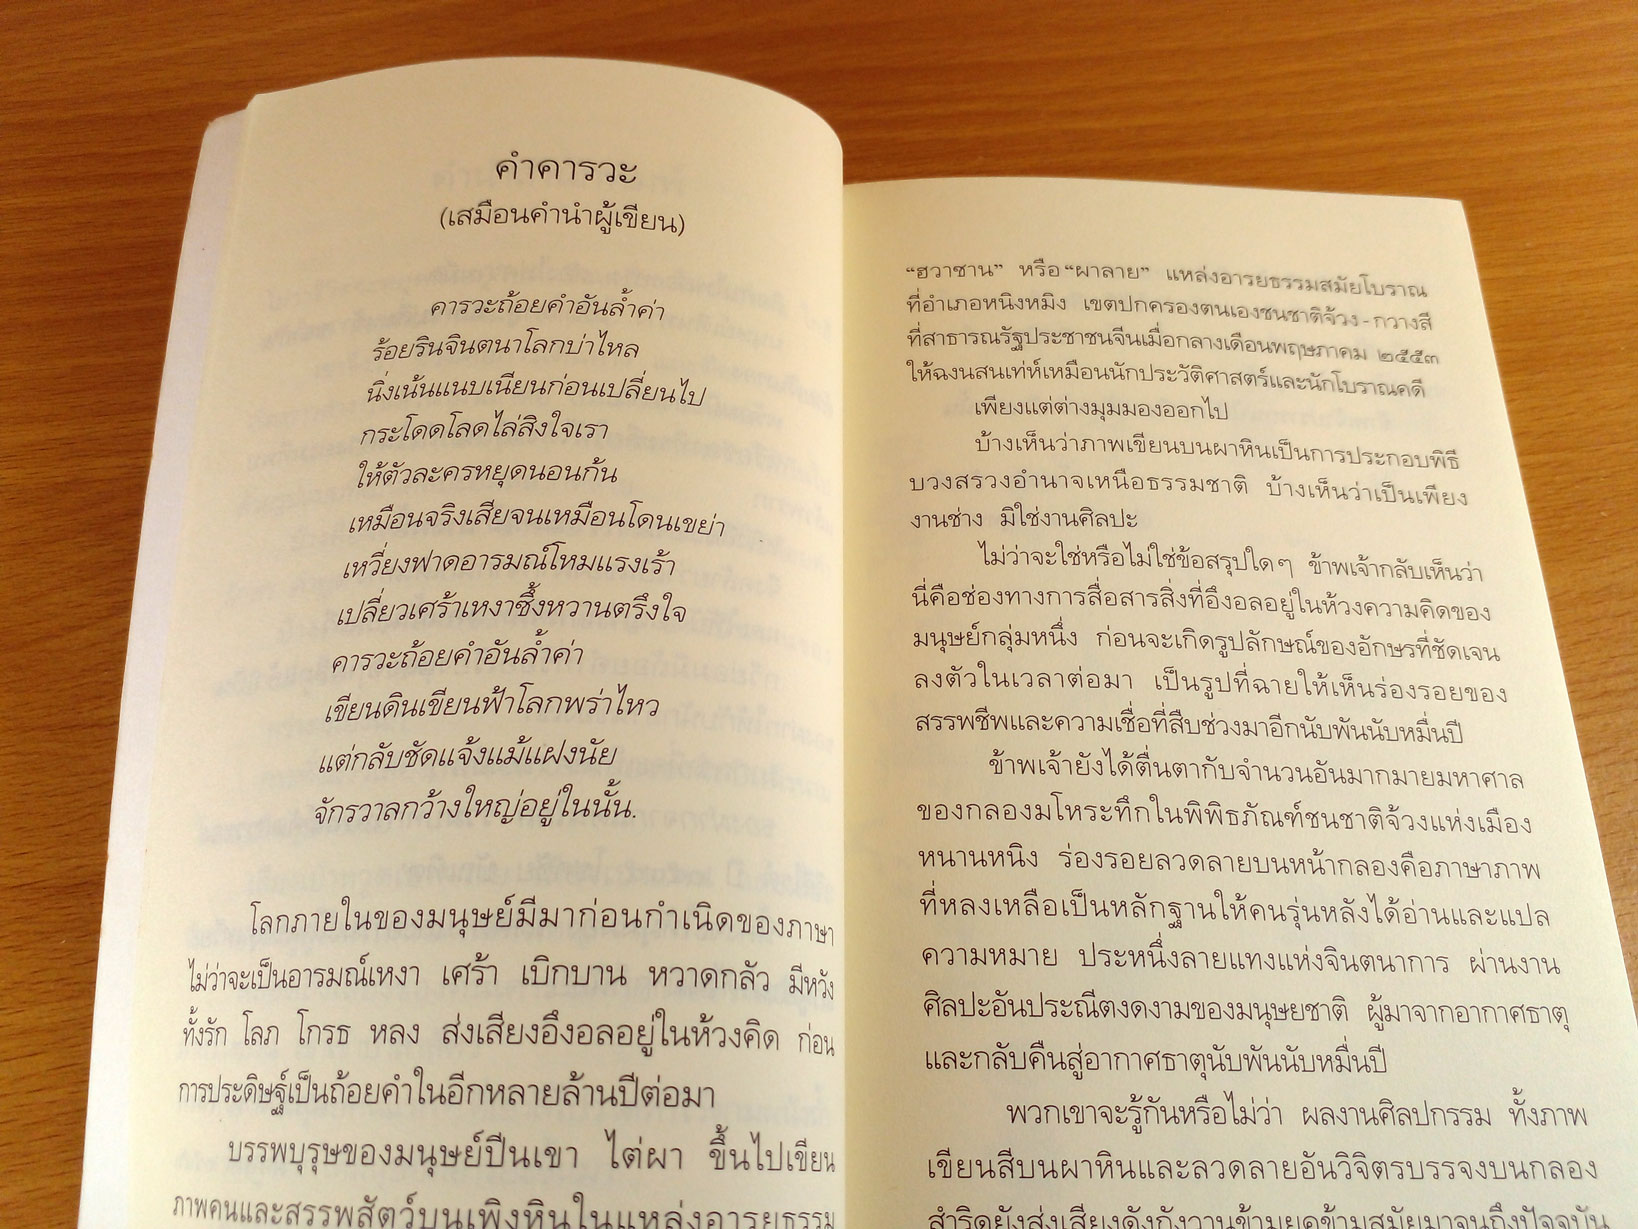 คำคารวะ
(เสมือนคำนำผู้เขียน)
คารวะถ้อยคำอันล้ำค่า
ร้อยรินจินตนาโลกบ่าไหล
นิ่งเน้นแนบเนียนก่อนเปลี่ยนไป
กระโดดโลดไล่สิงใจเรา
ให้ตัวละครหยุดนอนก้น
เหมือนจริงเสียจนเหมือนโดนเขย่า
เหวี่ยงฟาดอารมณ์โหมแรงเร้า
เปลี่ยวเศร้าเหงาซึ้งหวานตรึงใจ
คารวะถ้อยคำอันล้ำค่า
เขียนดินเขียนฟ้าโลกพร่าไหว
แต่กลับชัดแจ้งแม้แฝงนัย
จักรวาลกว้างใหญ่อยู่ในนั้น.
โลกภายในของมนุษย์มีมาก่อนกำเนิดของภาษา
ไม่ว่าจะเป็นอารมณ์เหงา เศร้า เบิกบาน หวาดกลัว มีหวัง
ทั้งรัก โลภ โกรธ หลง ส่งเสียงอึงอลอยู่ในห้วงคิด ก่อน
การประดิษฐ์เป็นถ้อยคำในอีกหลายล้านปีต่อมา
บรรพบุรุษของมนุษย์ปีนเขา ไต่ผา ขึ้นไปเขียน
ภาพคนและสรรพสัตว์บนเพิงหินในแหล่งอารยธรรม
“ฮวาซาน” หรือ “ผาลาย” แหล่งอารยธรรมสมัยโบราณ
ที่อำเภอหนิงหมิง เขตปกครองตนเองชนชาติจ้วง-กวางสี
ที่สาธารณรัฐประชาชนจีนเมื่อกลางเดือนพฤษภาคม ๒๕๕๓
ให้ฉงนสนเท่ห์เหมือนนักประวัติศาสตร์และนักโบราณคดี
เพียงแต่ต่างมุมมองออกไป
บ้างเห็นว่าภาพเขียนบนผาหินเป็นการประกอบพิธี
บวงสรวงอำนาจเหนือธรรมชาติ บ้างเห็นว่าเป็นเพียง
งานช่าง มิใช่งานศิลปะ
ไม่ว่าจะใช่หรือไม่ใช่ข้อสรุปใดๆ ข้าพเจ้ากลับเห็นว่า
นี่คือช่องทางการสื่อสารสิ่งที่อึงอลอยู่ในห้วงความคิดของ
มนุษย์กลุ่มหนึ่ง ก่อนจะเกิดรูปลักษณ์ของอักษรที่ชัดเจน
ลงตัวในเวลาต่อมา เป็นรูปที่ฉายให้เห็นร่องรอยของ
สรรพชีพและความเชื่อที่สืบช่วงมาอีกนับพันนับหมื่นปี
ข้าพเจ้ายังได้ตื่นตากับจำนวนอันมากมายมหาศาล
ของกลองมโหระทึกในพิพิธภัณฑ์ชนชาติจ้วงแห่งเมือง
หนานหนิง ร่องรอยลวดลายบนหน้ากลองคือภาษาภาพ
ที่หลงเหลือเป็นหลักฐานให้คนรุ่นหลังได้อ่านและแปล
ความหมาย ประหนึ่งลายแทงแห่งจินตนาการ ผ่านงาน
ศิลปะอันประณีตงดงามของมนุษยชาติ ผู้มาจากอากาศธาตุ
และกลับคืนสู่อากาศธาตุนับพันนับหมื่นปี
พวกเขาจะรู้กันหรือไม่ว่า ผลงานศิลปกรรม ทั้งภาพ
เขียนสีบนผาหินและลวดลายอันวิจิตรบรรจงบนกลอง
สำริดยังส่งเสียงดังกังวานข้ามยุคข้ามสมัยมาจนถึงปัจจุบัน